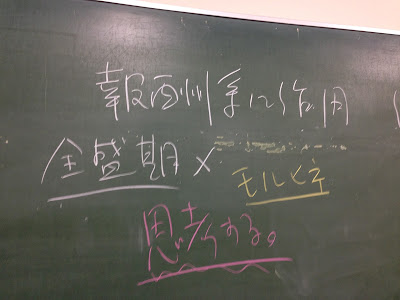 報酬系に作用
全盛期×
モルヒネ
思考する。